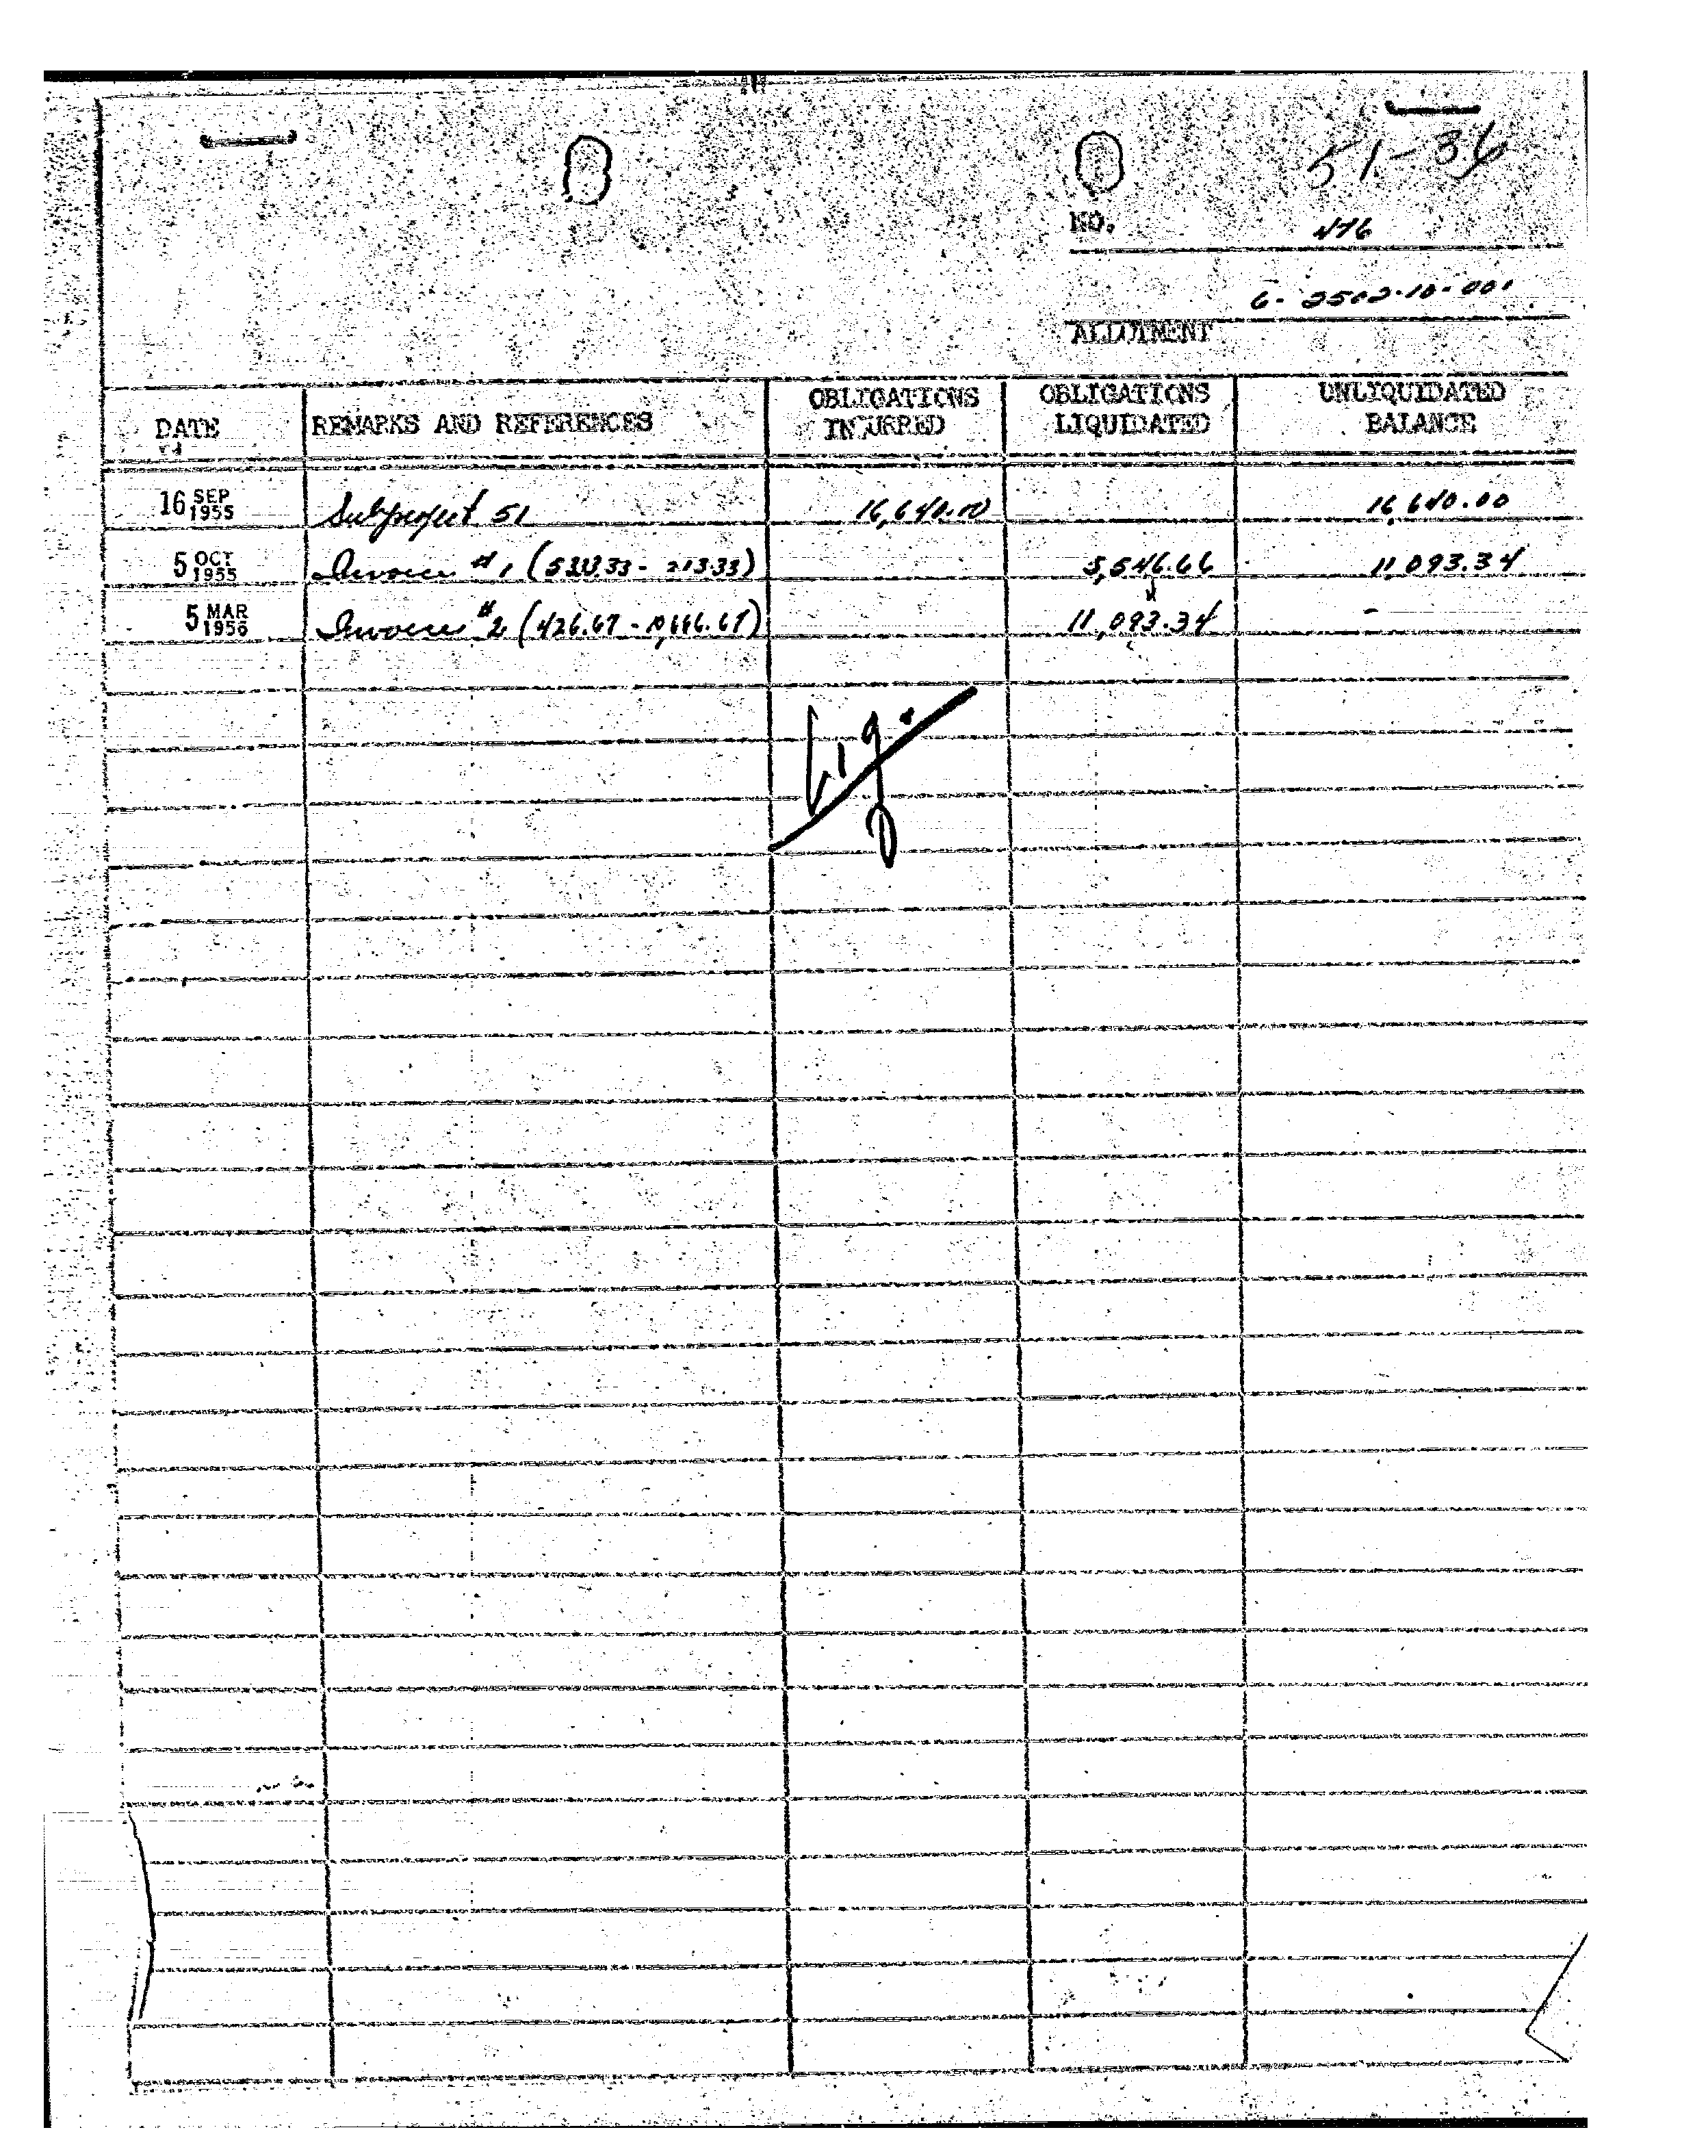 51-36
NO. 476
6-2502-10-001
ALLOTMENT
DATE REMARKS AND REFERENCES OBLIGATIONS INCURRED OBLIGATIONS LIQUIDATED UNLIQUIDATED BALANCE
16 SEP 1955 Subproject 51 16,640.00 16,640.00
5 OCT 1955 Invoice #1 (5333.33 - 213.33) 5,546.66 11,093.34
5 MAR 1956 Invoice #2 (426.67 - 10,666.67) 11,093.34 -
Liq.